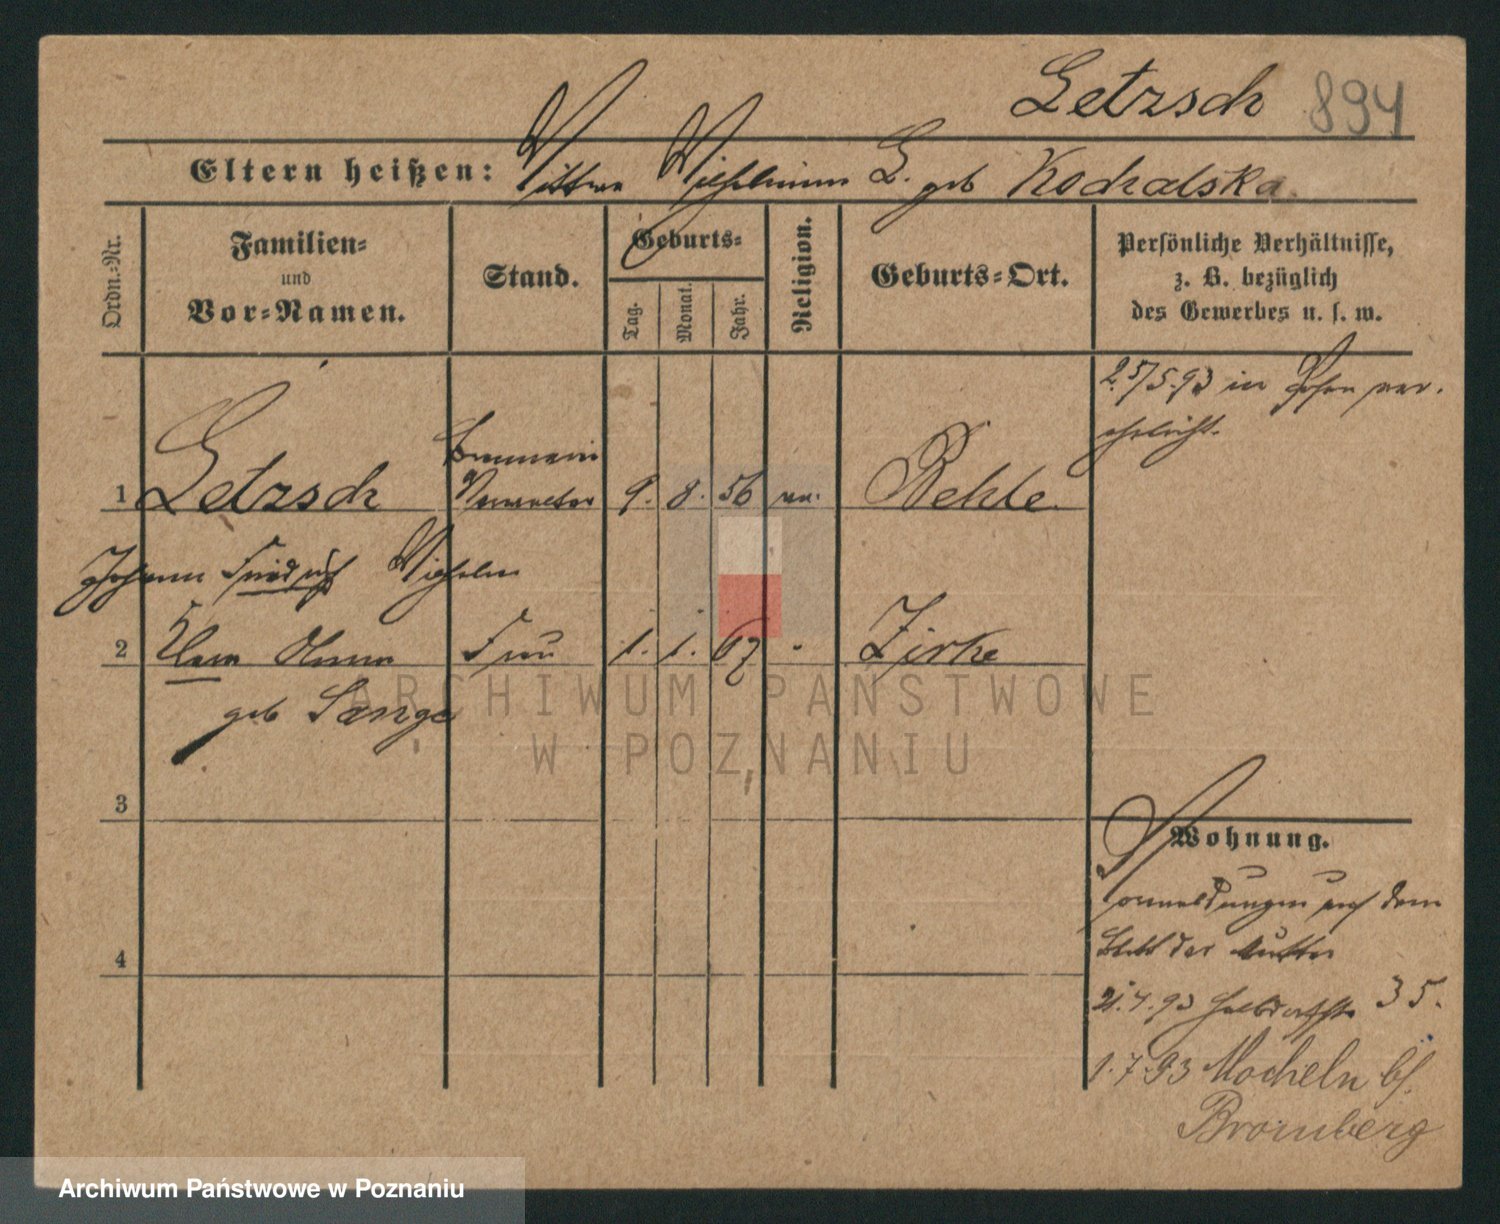 Letzsch 894
Eltern heißen: Wittwe Wilhelmine L. geb Kochalska.
Ordn.-Nr.
Familien-
und
Vor-Namen.
Stand.
Geburts-
Tag.
Monat.
Jahr.
Religion.
Geburts-Ort.
Persönliche Verhältnisse,
z. B. bezüglich
des Gewerbes u. s. w.
25/5.93 in Posen ver-
ehelicht.
Brennerei
1 Letzsch Verwalter 9. 8. 56 ev. Rehle.
Johann Friedrich Wilhelm
2 Anna Frau 1. 1. 67 " Zirke
geb Lange
3
4
Wohnung.
Vormeldungen auf dem
Blatt der Mutter
21.4.93 Halbdorfstr 35.
1.7.93 Mocheln b/.
Bromberg
ARCHIWUM PAŃSTWOWE
W POZNANIU
Archiwum Państwowe w Poznaniu